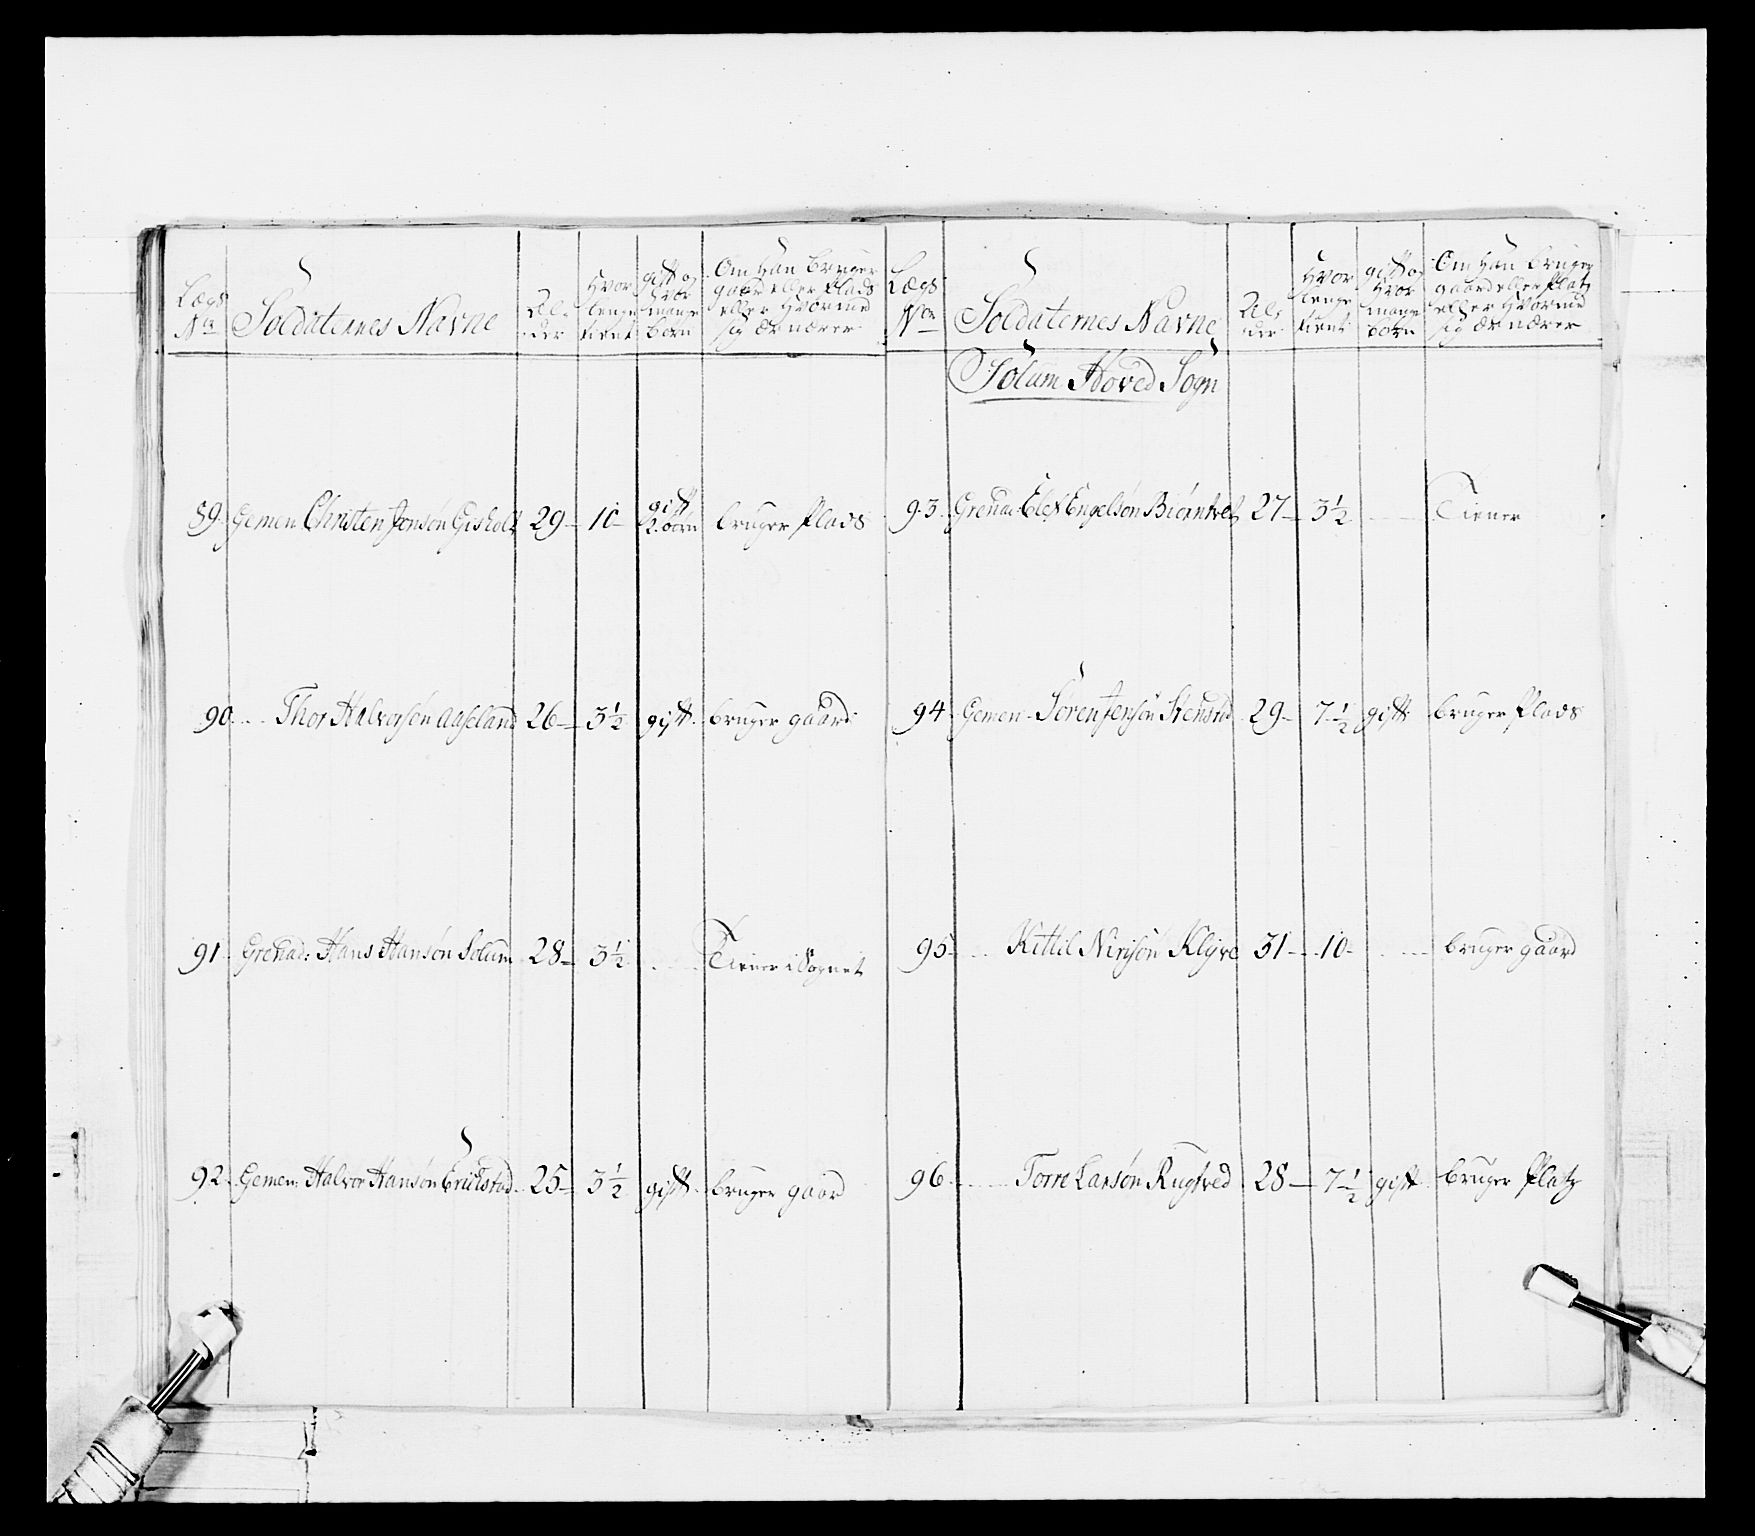 Lægs No | Soldaternes Navne | Al-der | Hvor lenge tient | gift og Hvor mange børn | Om Han bruger gaard eller Plads eller Hvormed sig Ærnærer
89. Gemen Christen Jonsøn Gisholt 29 10 gift 2. børn bruger Plads
90. Thor Halvorsøn Aaseland 26 3½ gift bruger gaard
91 Grenad: Hans Hansøn Solum 28 3½ Tiener i Sognet
92 Gemen: Halvor Hansøn Erichstad 25 3½ gift bruger gaard
Lægs No | Soldaternes Navne | Al-der | Hvor lenge tient | gift og Hvor mange børn | Om Han bruger gaard eller Platz eller Hvormed sig Ærnærer
Solum Hoved Sogn
93 Grenad: Elef Engelsøn Biørntvet 27 3½ Tiener
94 Gemen Søren Jensøn Stensrød 29 7½ gift bruger Plads
95 Kittil Nirisøn Klyve 31 10 bruger gaard
96 Torre Larsøn Rugtved 28 7½ gift bruger Platz